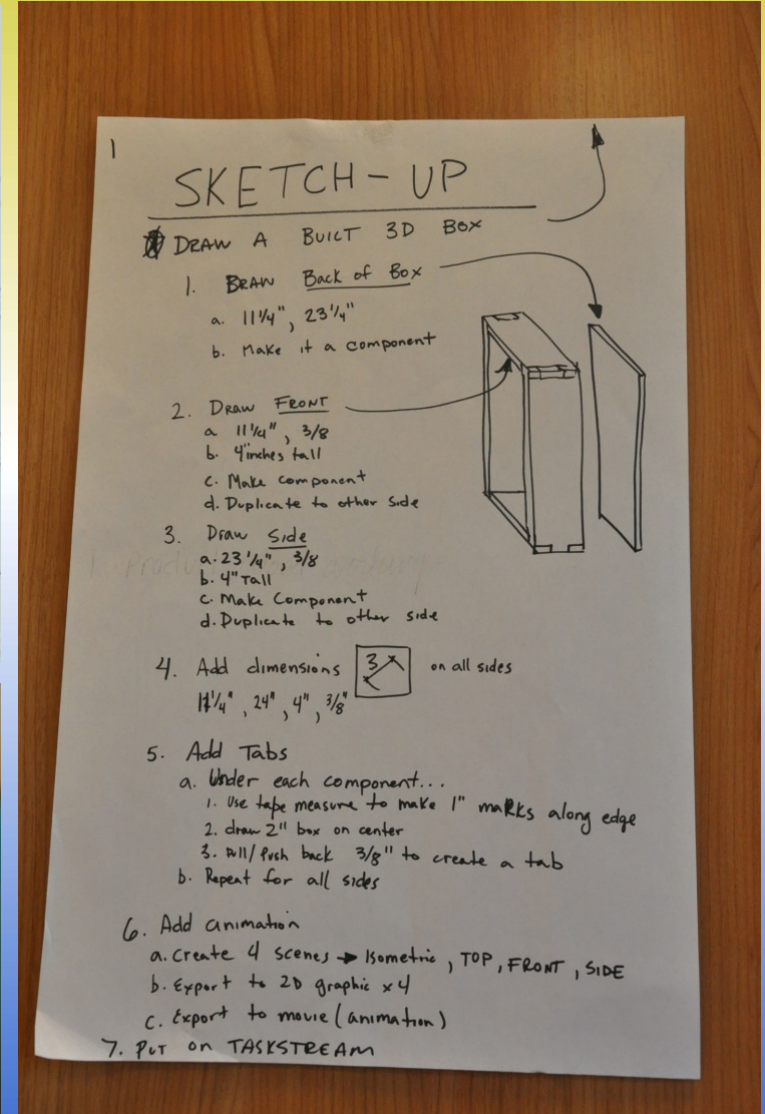 1
SKETCH - UP
DRAW A BUILT 3D BOX
1. DRAW Back of Box
a. 11 1/4", 23 1/4"
b. Make it a component
2. Draw FRONT
a 11 1/4", 3/8
b. 4"inches tall
c. Make component
d. Duplicate to other side
3. Draw Side
a. 23 1/4", 3/8
b. 4" Tall
c. Make Component
d. Duplicate to other side
4. Add dimensions 3 on all sides
11 1/4", 24", 4", 3/8"
5. Add Tabs
a. Under each component...
1. Use tape measure to make 1" marks along edge
2. draw 2" box on center
3. Pull/Push back 3/8" to create a tab
b. Repeat for all sides
6. Add animation
a. Create 4 scenes → Isometric, TOP, FRONT, SIDE
b. Export to 2D graphic x 4
c. Export to movie (animation)
7. PUT on TASKSTREAM